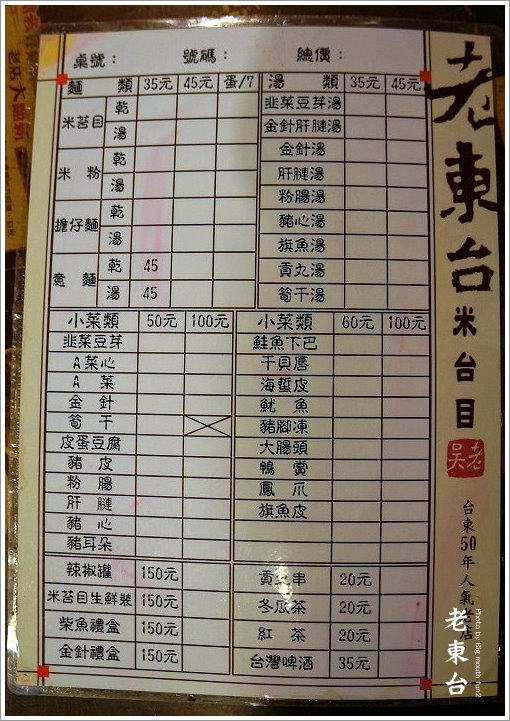 桌號： 號碼： 總價：
麵 類 35元 45元 蛋/7 湯 類 35元 45元
米苔目 乾 湯
米 粉 乾 湯
擔仔麵 乾 湯
意 麵 乾 45 湯 45
韭菜豆芽湯
金針肝腱湯
金針湯
肝腱湯
粉腸湯
豬心湯
旗魚湯
貢丸湯
筍干湯
小菜類 50元 100元
韭菜豆芽
A菜心
A 菜
金 針
筍 干
皮蛋豆腐
豬 皮
粉 腸
肝 腱
豬 心
豬耳朵
小菜類 60元 100元
鮭魚下巴
干貝唇
海蜇皮
魷 魚
豬腳凍
大腸頭
鴨 賞
鳳 爪
旗魚皮
辣椒罐 150元
米苔目生鮮裝 150元
柴魚禮盒 150元
金針禮盒 150元
貢丸串 20元
冬瓜茶 20元
紅 茶 20元
台灣啤酒 35元
老東台
米台目
老吳
台東50年人氣老店
老東台
Photo by Big mouth run2